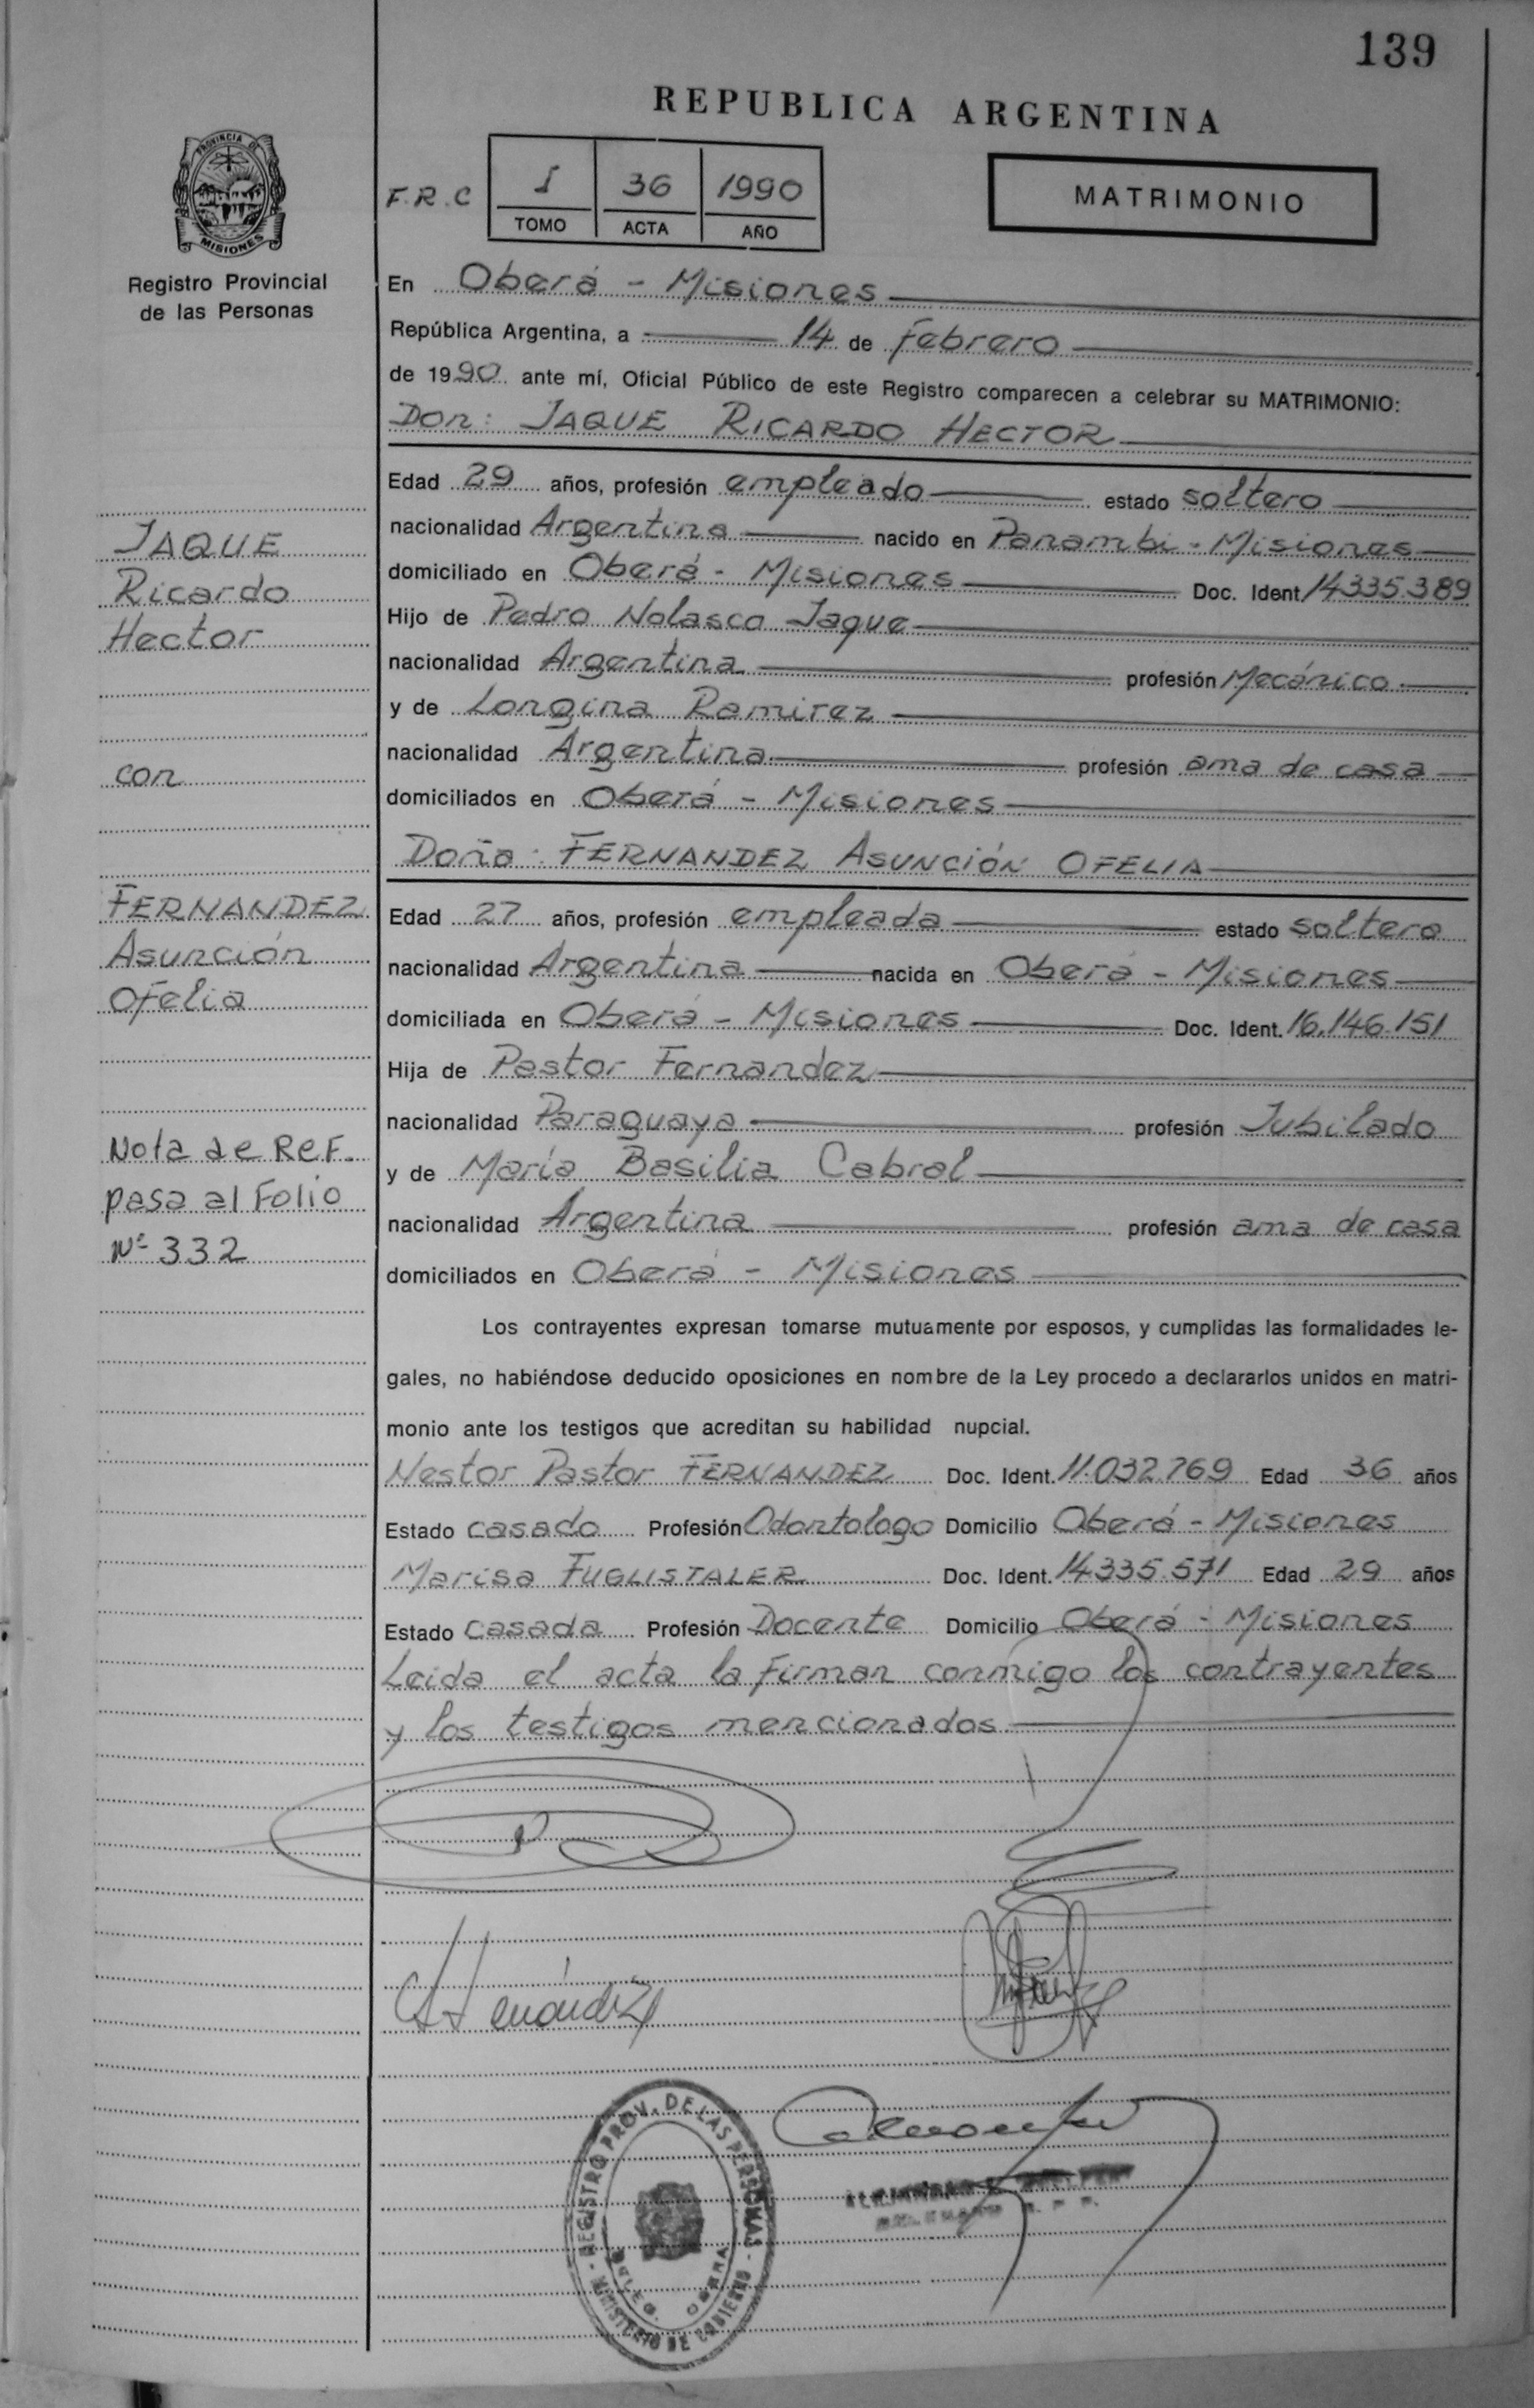 139
REPUBLICA ARGENTINA
PROVINCIA DE
MISIONES
Registro Provincial
de las Personas
F.R.C
I 36 1990
TOMO ACTA AÑO
MATRIMONIO
En Oberá - Misiones
República Argentina, a 14 de Febrero
de 1990 ante mí, Oficial Público de este Registro comparecen a celebrar su MATRIMONIO:
Don: JAQUE RICARDO HECTOR
Edad 29 años, profesión empleado estado soltero
nacionalidad Argentina nacido en Panambi - Misiones
domiciliado en Oberá - Misiones Doc. Ident 14.335.389
Hijo de Pedro Nolasco Jaque
nacionalidad Argentina profesión Mecánico
y de Longina Ramirez
nacionalidad Argentina profesión ama de casa
domiciliados en Oberá - Misiones
Doña: FERNANDEZ ASUNCIÓN OFELIA
Edad 27 años, profesión empleada estado soltera
nacionalidad Argentina nacida en Oberá - Misiones
domiciliada en Oberá - Misiones Doc. Ident. 16.146.151
Hija de Pastor Fernandez
nacionalidad Paraguaya profesión Jubilado
y de María Basilia Cabral
nacionalidad Argentina profesión ama de casa
domiciliados en Oberá - Misiones
Los contrayentes expresan tomarse mutuamente por esposos, y cumplidas las formalidades le-
gales, no habiéndose deducido oposiciones en nombre de la Ley procedo a declararlos unidos en matri-
monio ante los testigos que acreditan su habilidad nupcial.
Nestor Pastor FERNANDEZ Doc. Ident. 11.032.769 Edad 36 años
Estado casado Profesión Odontologo Domicilio Oberá - Misiones
Marisa FUGLISTALER Doc. Ident. 14.335.571 Edad 29 años
Estado casada Profesión Docente Domicilio Oberá - Misiones
Leida el acta la Firman conmigo los contrayentes
y los testigos mencionados
JAQUE
Ricardo
Hector
con
FERNANDEZ
Asunción
OFelia
Nota de ReF.
pasa al Folio
Nº 332
REGISTRO PROV. DE LAS PERSONAS
DELEG. OBERA
MINISTERIO DE GOBIERNO